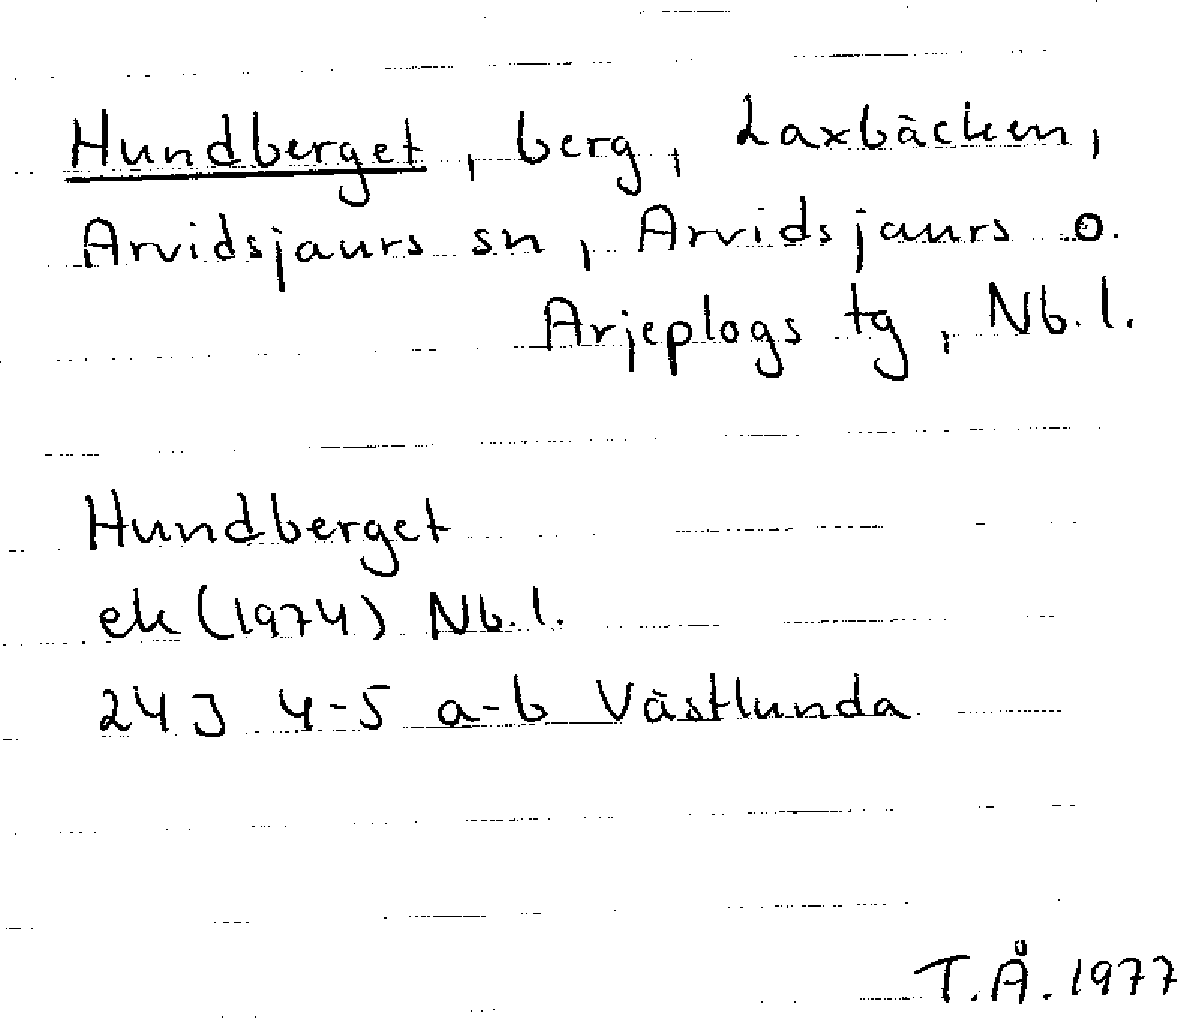 Hundberget, berg, Laxbäcken,
Arvidsjaurs sn, Arvidsjaurs o.
Arjeplogs tg, Nb. l.
Hundberget
ek (1974) Nb. l.
24J 4-5 a-b Västlunda
T.Å. 1977